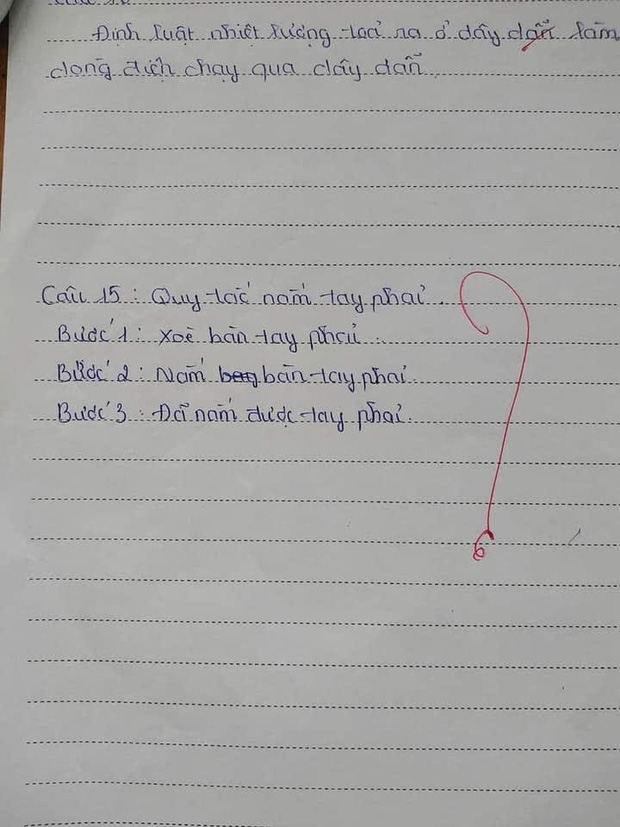 Định luật nhiệt lượng toả ra ở dây dẫn làm
dòng điện chạy qua dây dẫn
Câu 15 : Quy tắc nắm tay phải .
Bước 1 : Xoè bàn tay phải .
Bước 2 : Nắm bàn tay phải
Bước 3 : Đã nắm được tay phải.